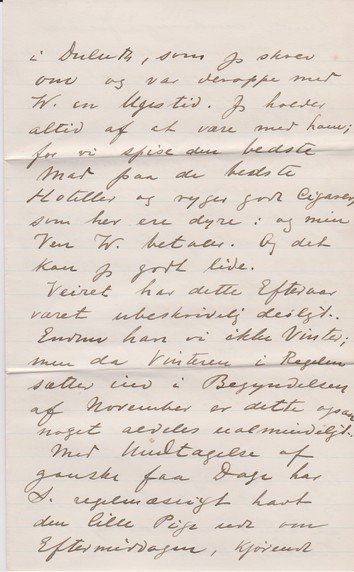 i Duluth, som jeg skrev
om og var deroppe med
W. en Ugestid. Jeg holder
altid af at være med ham;
for vi spise den bedste
Mad paa de bedste
Hoteller og ryger gode Cigarer,
som her ere dyre: og min
Ven W. betaler. Og det
kan jeg godt lide.
Veiret har dette Efteraar
været ubeskrivelig deiligt.
Endnu har vi ikke Vinter;
men da Vinteren i Regelen
sætter ind i Begyndelsen
af November er dette ogsaa
noget aldeles ualmindeligt.
Med Undtagelse af
ganske faa Dage har
S. regelmæssigt havt
den lille Pige ude om
Eftermiddagen, kjørende